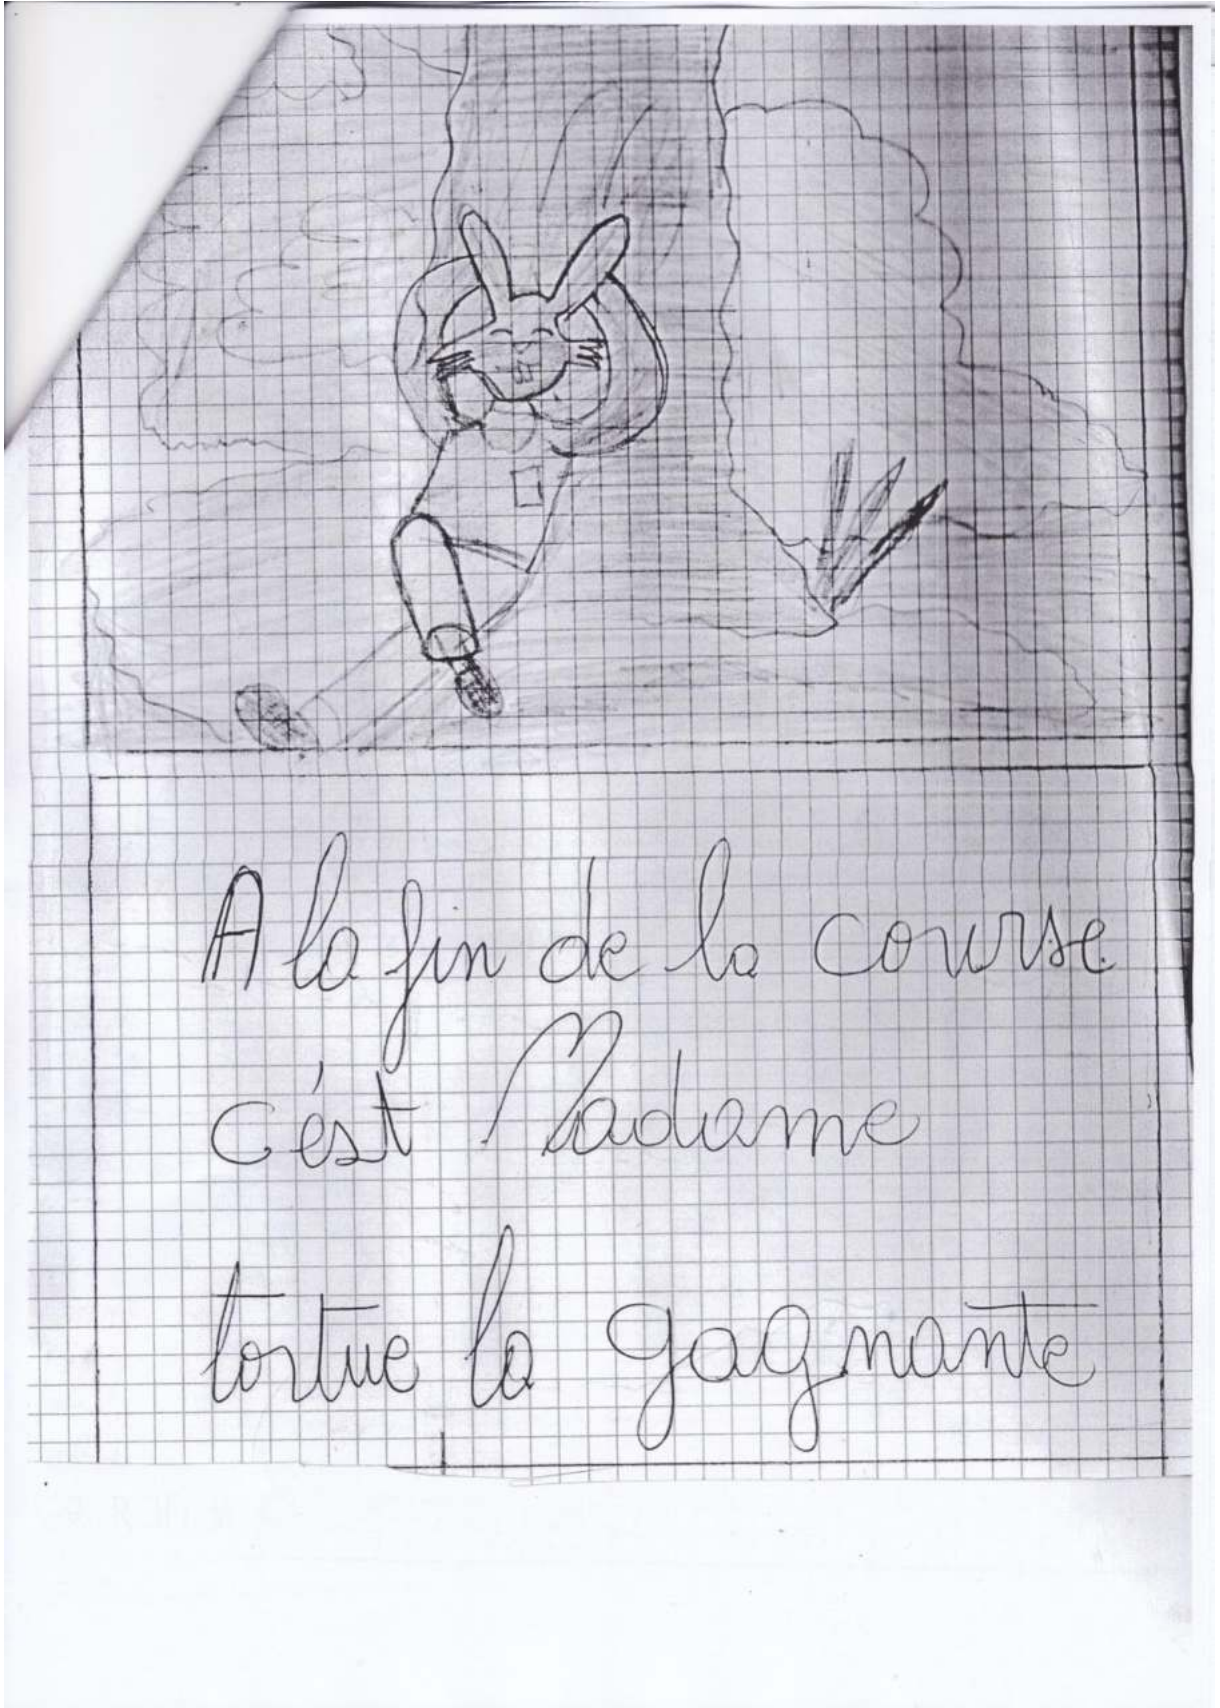 A la fin de la course
c'ést Madame
tortue la gagnante